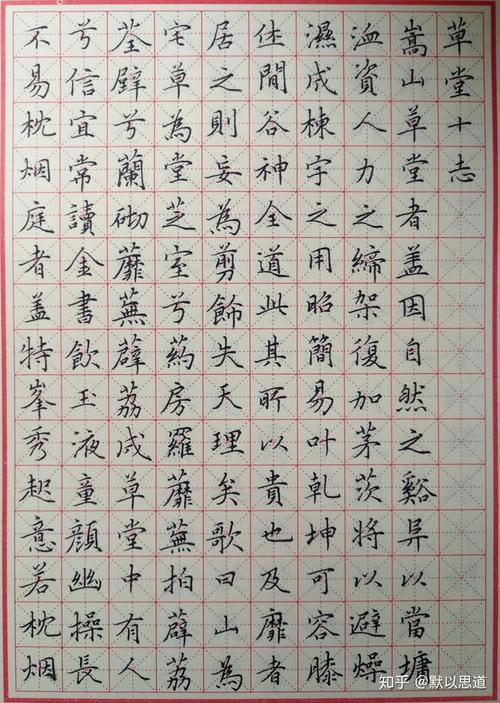 草堂十志
嵩山草堂者盖因自然之谿异以當墉
洫資人力之締架復加茅茨將以避燥
濕成棟宇之用昭簡易叶乾坤可容膝
休閒谷神全道此其所以貴也及靡者
居之則妄為剪飾失天理矣歌曰山為
宅草為堂芝室兮葯房羅蘼蕪拍薜荔
荃壁兮蘭砌蘼蕪薜荔成草堂中有人
兮信宜常讀金書飲玉液童顏幽操長
不易枕烟庭者盖特峯秀起意若枕烟
知乎 @默以思道